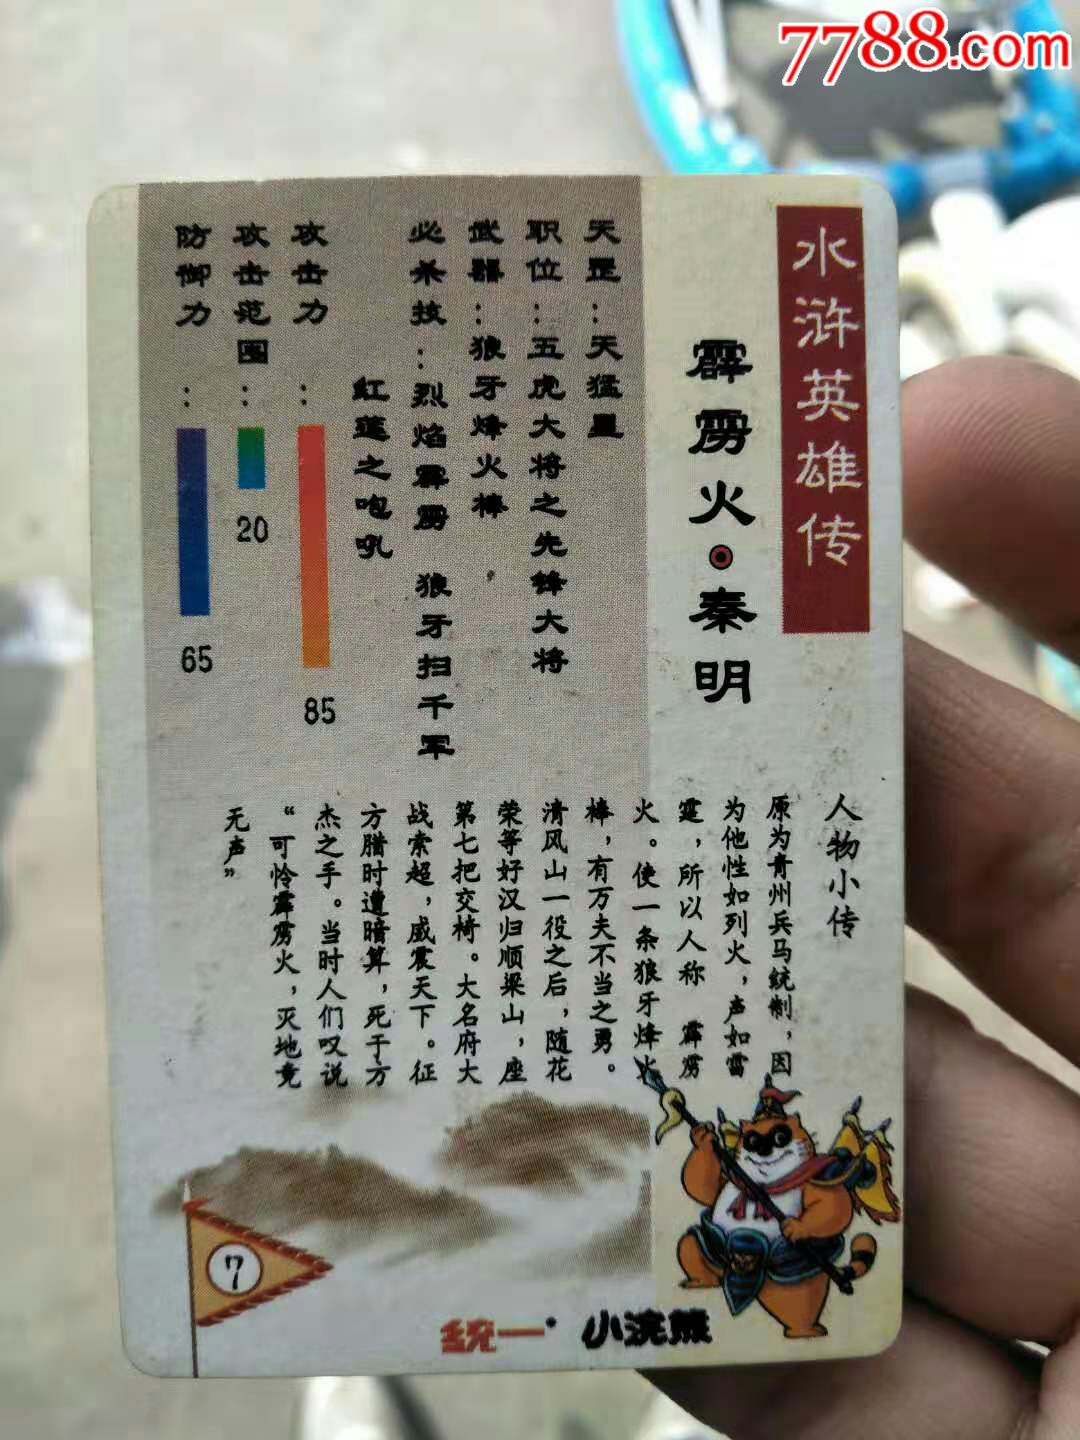 7788.com
水浒英雄传
霹雳火·秦明
天罡:天猛星
职位:五虎大将之先锋大将
武器:狼牙烽火棒
必杀技:烈焰霹雳 狼牙扫千军
红莲之咆吼
攻击力:85
攻击范围:20
防御力:65
人物小传
原为青州兵马统制,因
为他性如列火,声如雷
霆,所以人称 霹雳
火。使一条狼牙烽火
棒,有万夫不当之勇。
清风山一役之后,随花
荣等好汉归顺梁山,座
第七把交椅。大名府大
战索超,威震天下。征
方腊时遭暗算,死于方
杰之手。当时人们叹说
“可怜霹雳火,灭地竟
无声”
7
统一·小浣熊